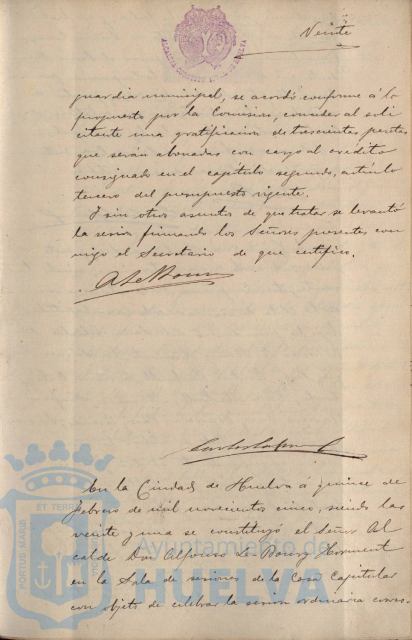 Veinte
ALCALDIA CONSTITUCIONAL HUELVA
guardia municipal, se acordó conforme á lo
propuesto por la Comision, conceder al soli
citante una gratificacion de trescientas pesetas
que serán abonadas con cargo al crédito
consignado en el capítulo segundo, artículo
tercero del presupuesto vigente.
Y sin otros asuntos de que tratar se levantó
la sesion firmando los Señores presentes con
migo el Secretario de que certifico.
En la Ciudad de Huelva á quince de
Febrero de mil novecientos cinco, siendo las
veinte y una se constituyó el Señor Al
calde Don Alfonso Le Bourg Horment
en la Sala de sesiones de la Casa Capitular
con objeto de celebrar la sesion ordinaria corres-
PORTUS MARIS ET TERRAE
Ayuntamiento de
HUELVA